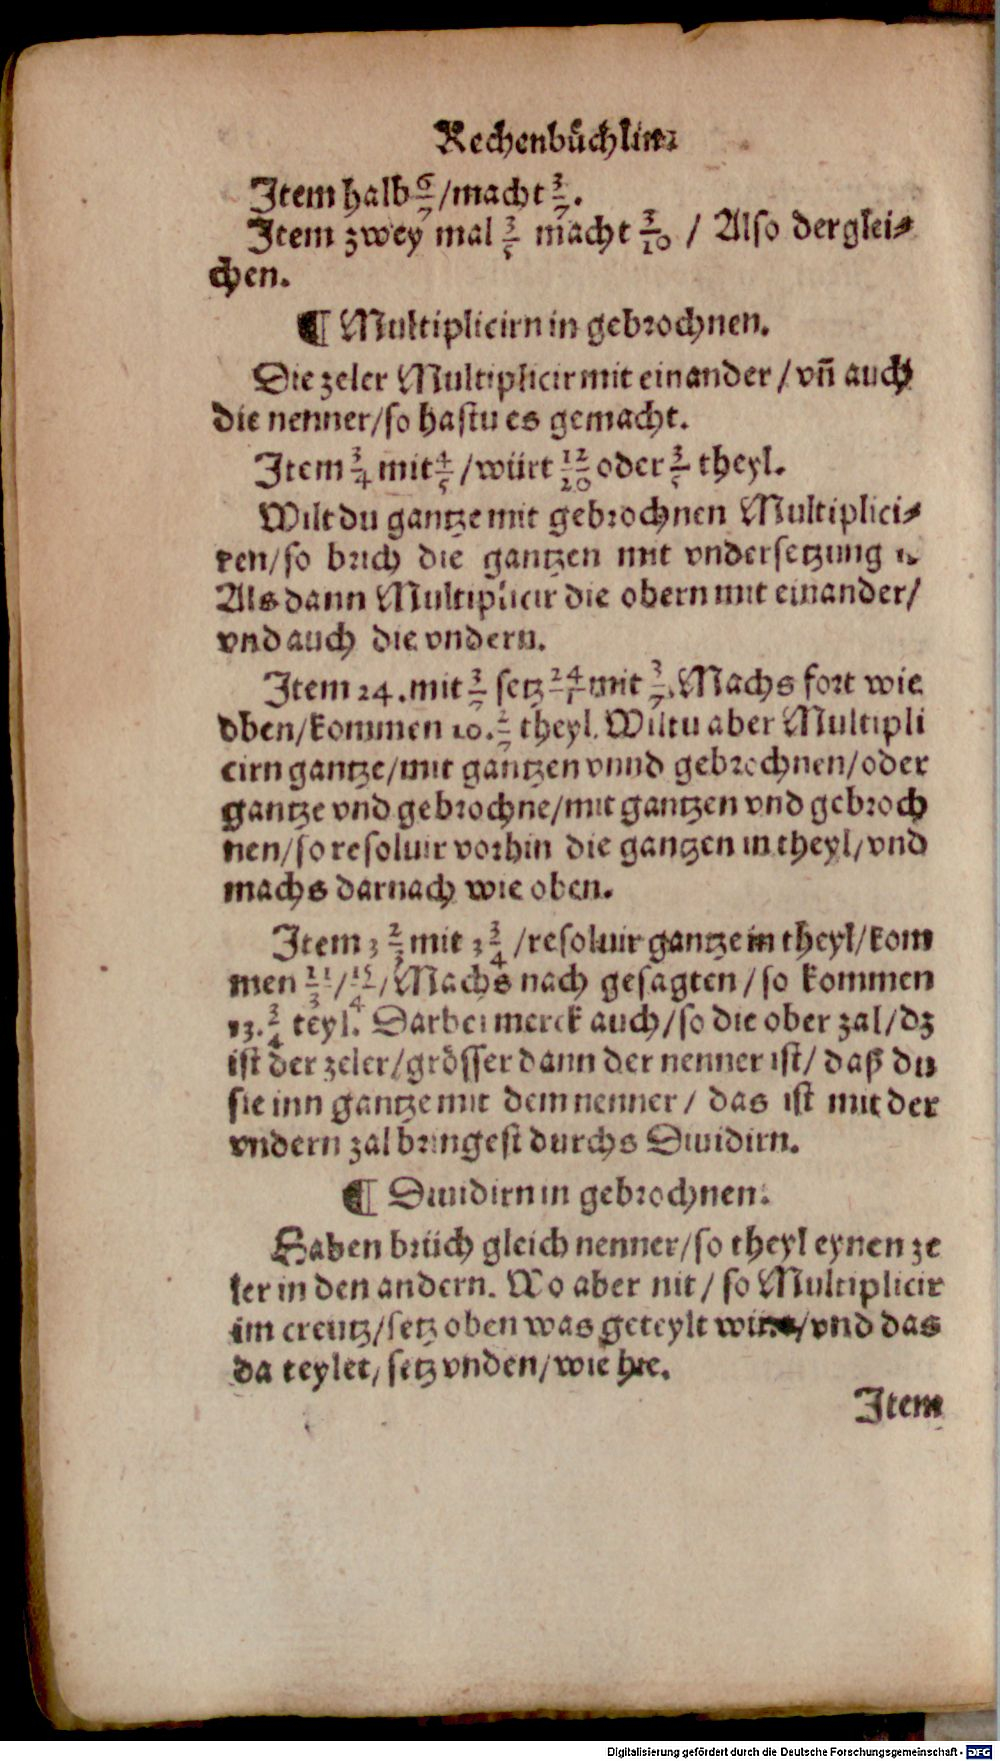 Rechenbüchlin.
Item halb 6/7 / macht 3/7.
Item zwey mal 3/5 macht 3/10 / Also derglei-
chen.
¶ Multiplicirn in gebrochnen.
Die zeler Multiplicir mit einander / vñ auch
die nenner / so hastu es gemacht.
Item 3/4 mit 4/5 / würt 12/20 oder 3/5 theyl.
Wilt du gantze mit gebrochnen Multiplici-
ren / so brich die gantzen mit vndersetzung 1.
Als dann Multiplicir die obern mit einander /
vnd auch die vndern.
Item 24. mit 3/7 setz 24/1 mit 3/7. Machs fort wie
oben / kommen 10. 2/7 theyl. Wiltu aber Multipli
cirn gantze / mit gantzen vnnd gebrochnen / oder
gantze vnd gebrochne / mit gantzen vnd gebroch
nen / so resoluir vorhin die gantzen in theyl / vnd
machs darnach wie oben.
Item 3 2/3 mit 3 3/4 / resoluir gantze in theyl / kom
men 11/3 / 15/4 / Machs nach gesagten / so kommen
13. 3/4 teyl. Darbei merck auch / so die ober zal / dz
ist der zeler / grösser dann der nenner ist / daß du
sie inn gantze mit dem nenner / das ist mit der
vndern zal bringest durchs Diuidirn.
¶ Diuidirn in gebrochnen.
Haben brüch gleich nenner / so theyl eynen ze
ler in den andern. Wo aber nit / so Multiplicir
im creutz / setz oben was geteylt wirt / vnd das
da teylet / setz vnden / wie hie.
Item
Digitalisierung gefördert durch die Deutsche Forschungsgemeinschaft - DFG